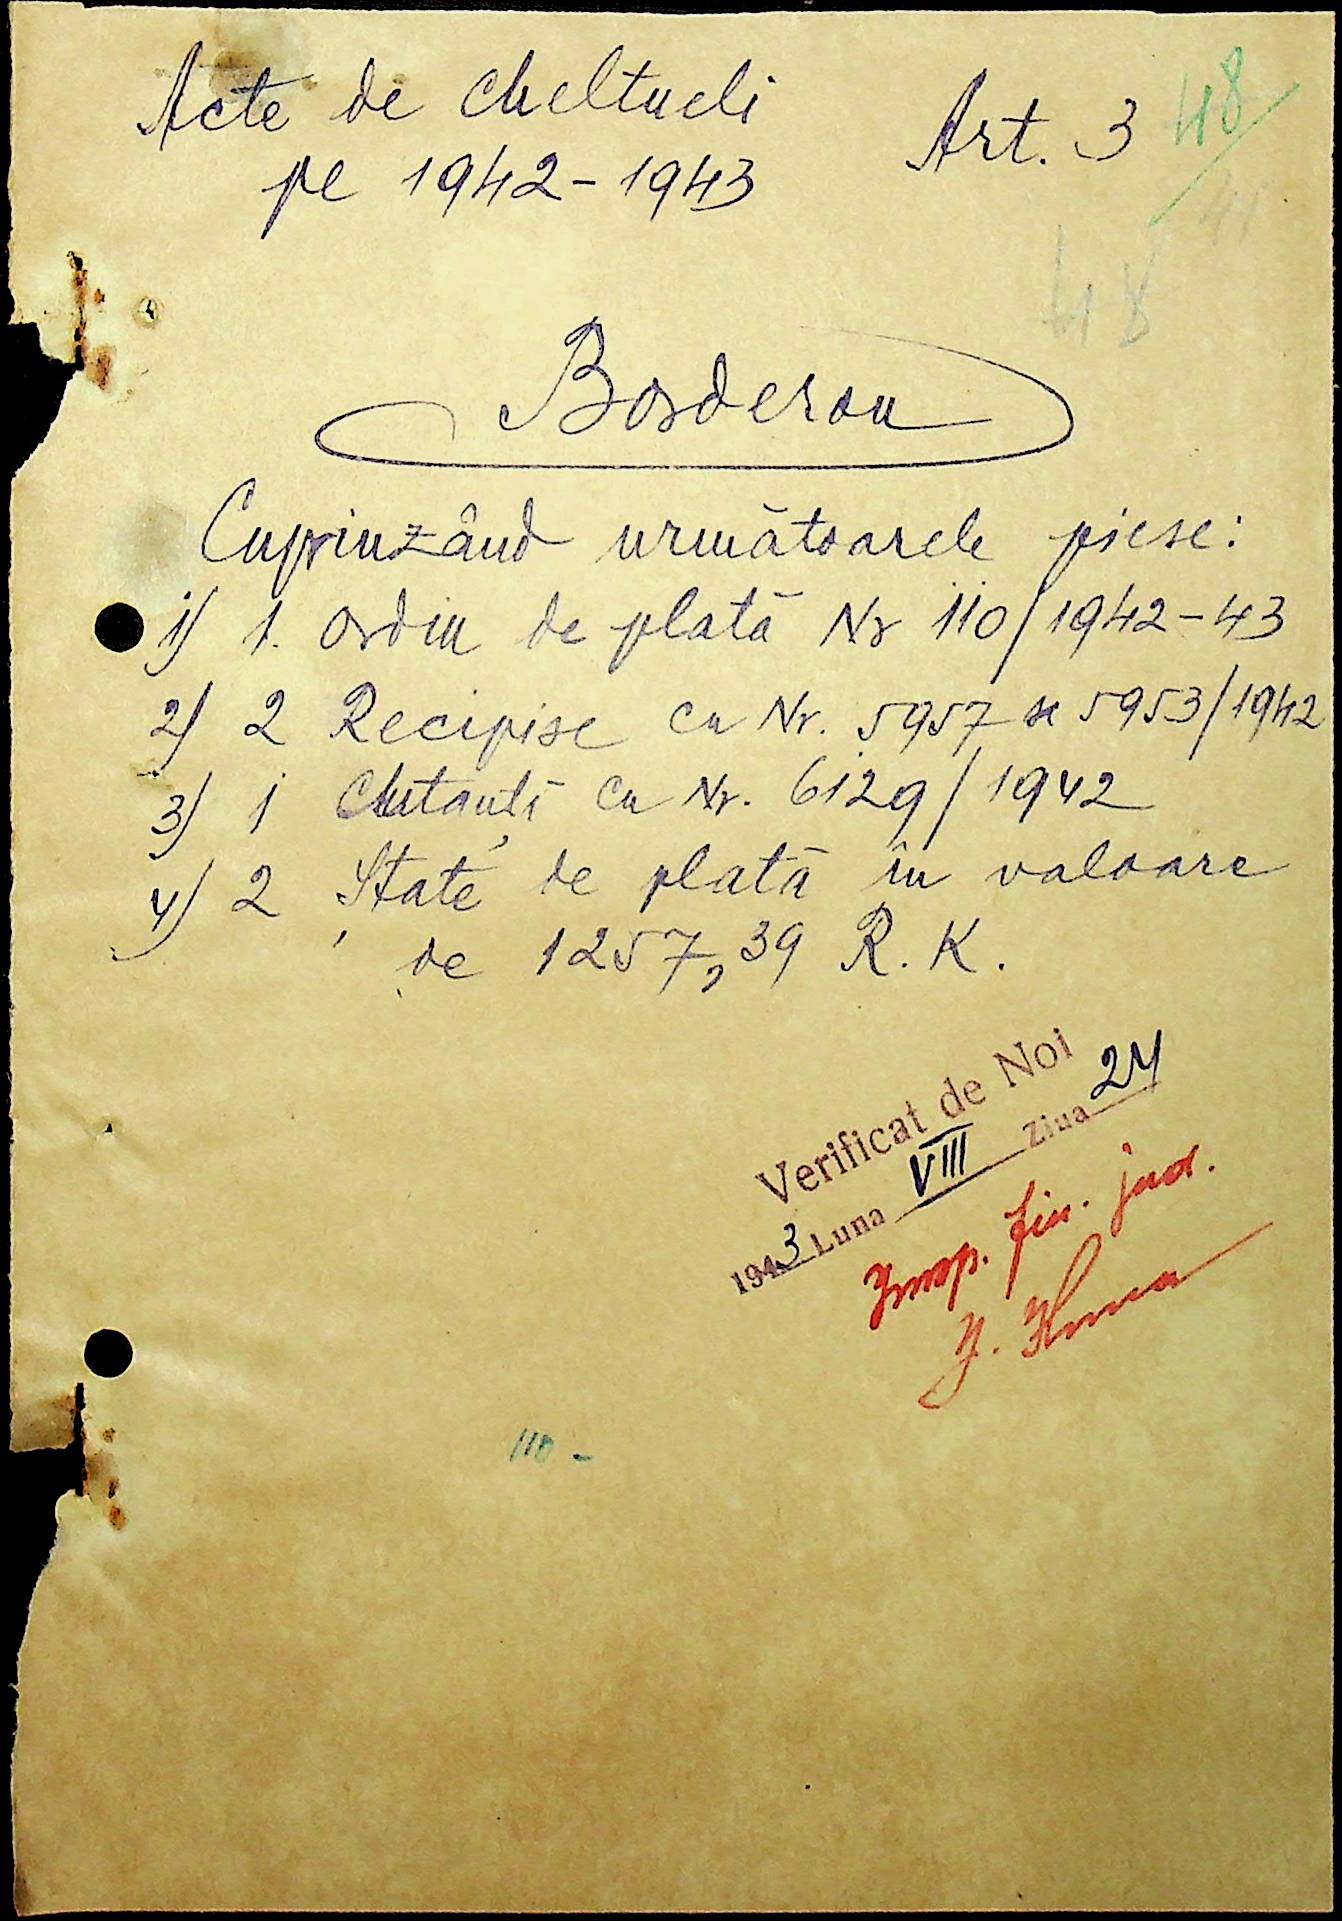 Acte de cheltueli
pe 1942-1943
Art. 3
48
48
Borderou
Cuprinzând următoarele piese:
1) 1. Ordin de plată Nr 110/1942-43
2) 2 Recipise cu Nr. 5957 și 5953/1942
3) 1 Chitanță cu Nr. 6129/1942
4) 2 State de plată în valoare
de 1257,39 R. K.
Verificat de Noi
1943 Luna VIII Ziua 24
Insp. fin. jud.
110 -